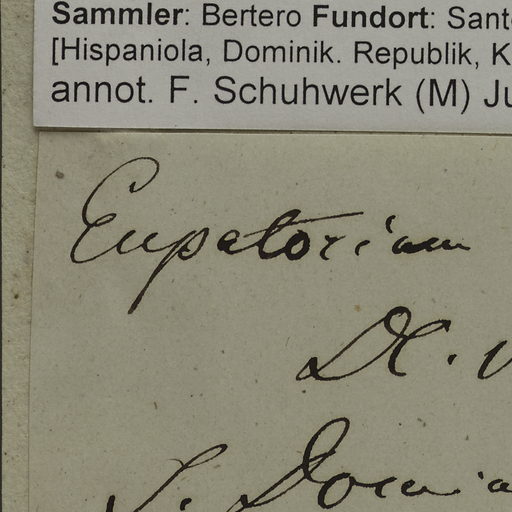 Sammler: Bertero Fundort: Sant
[Hispaniola, Dominik. Republik, K
annot. F. Schuhwerk (M) Ju
Eupatorium
DC.
S. Domin